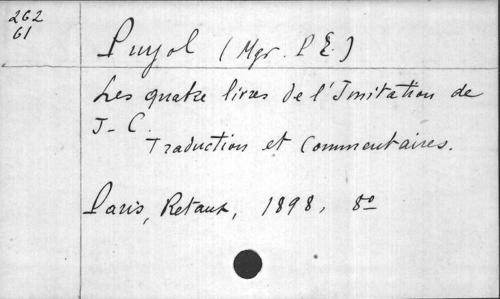 262
61
Puyol (Mgr. P E.)
Les quatre livres de l'Imitation de
J-C.
Traduction et Commentaires.
Paris, Retaux, 1898, 8º